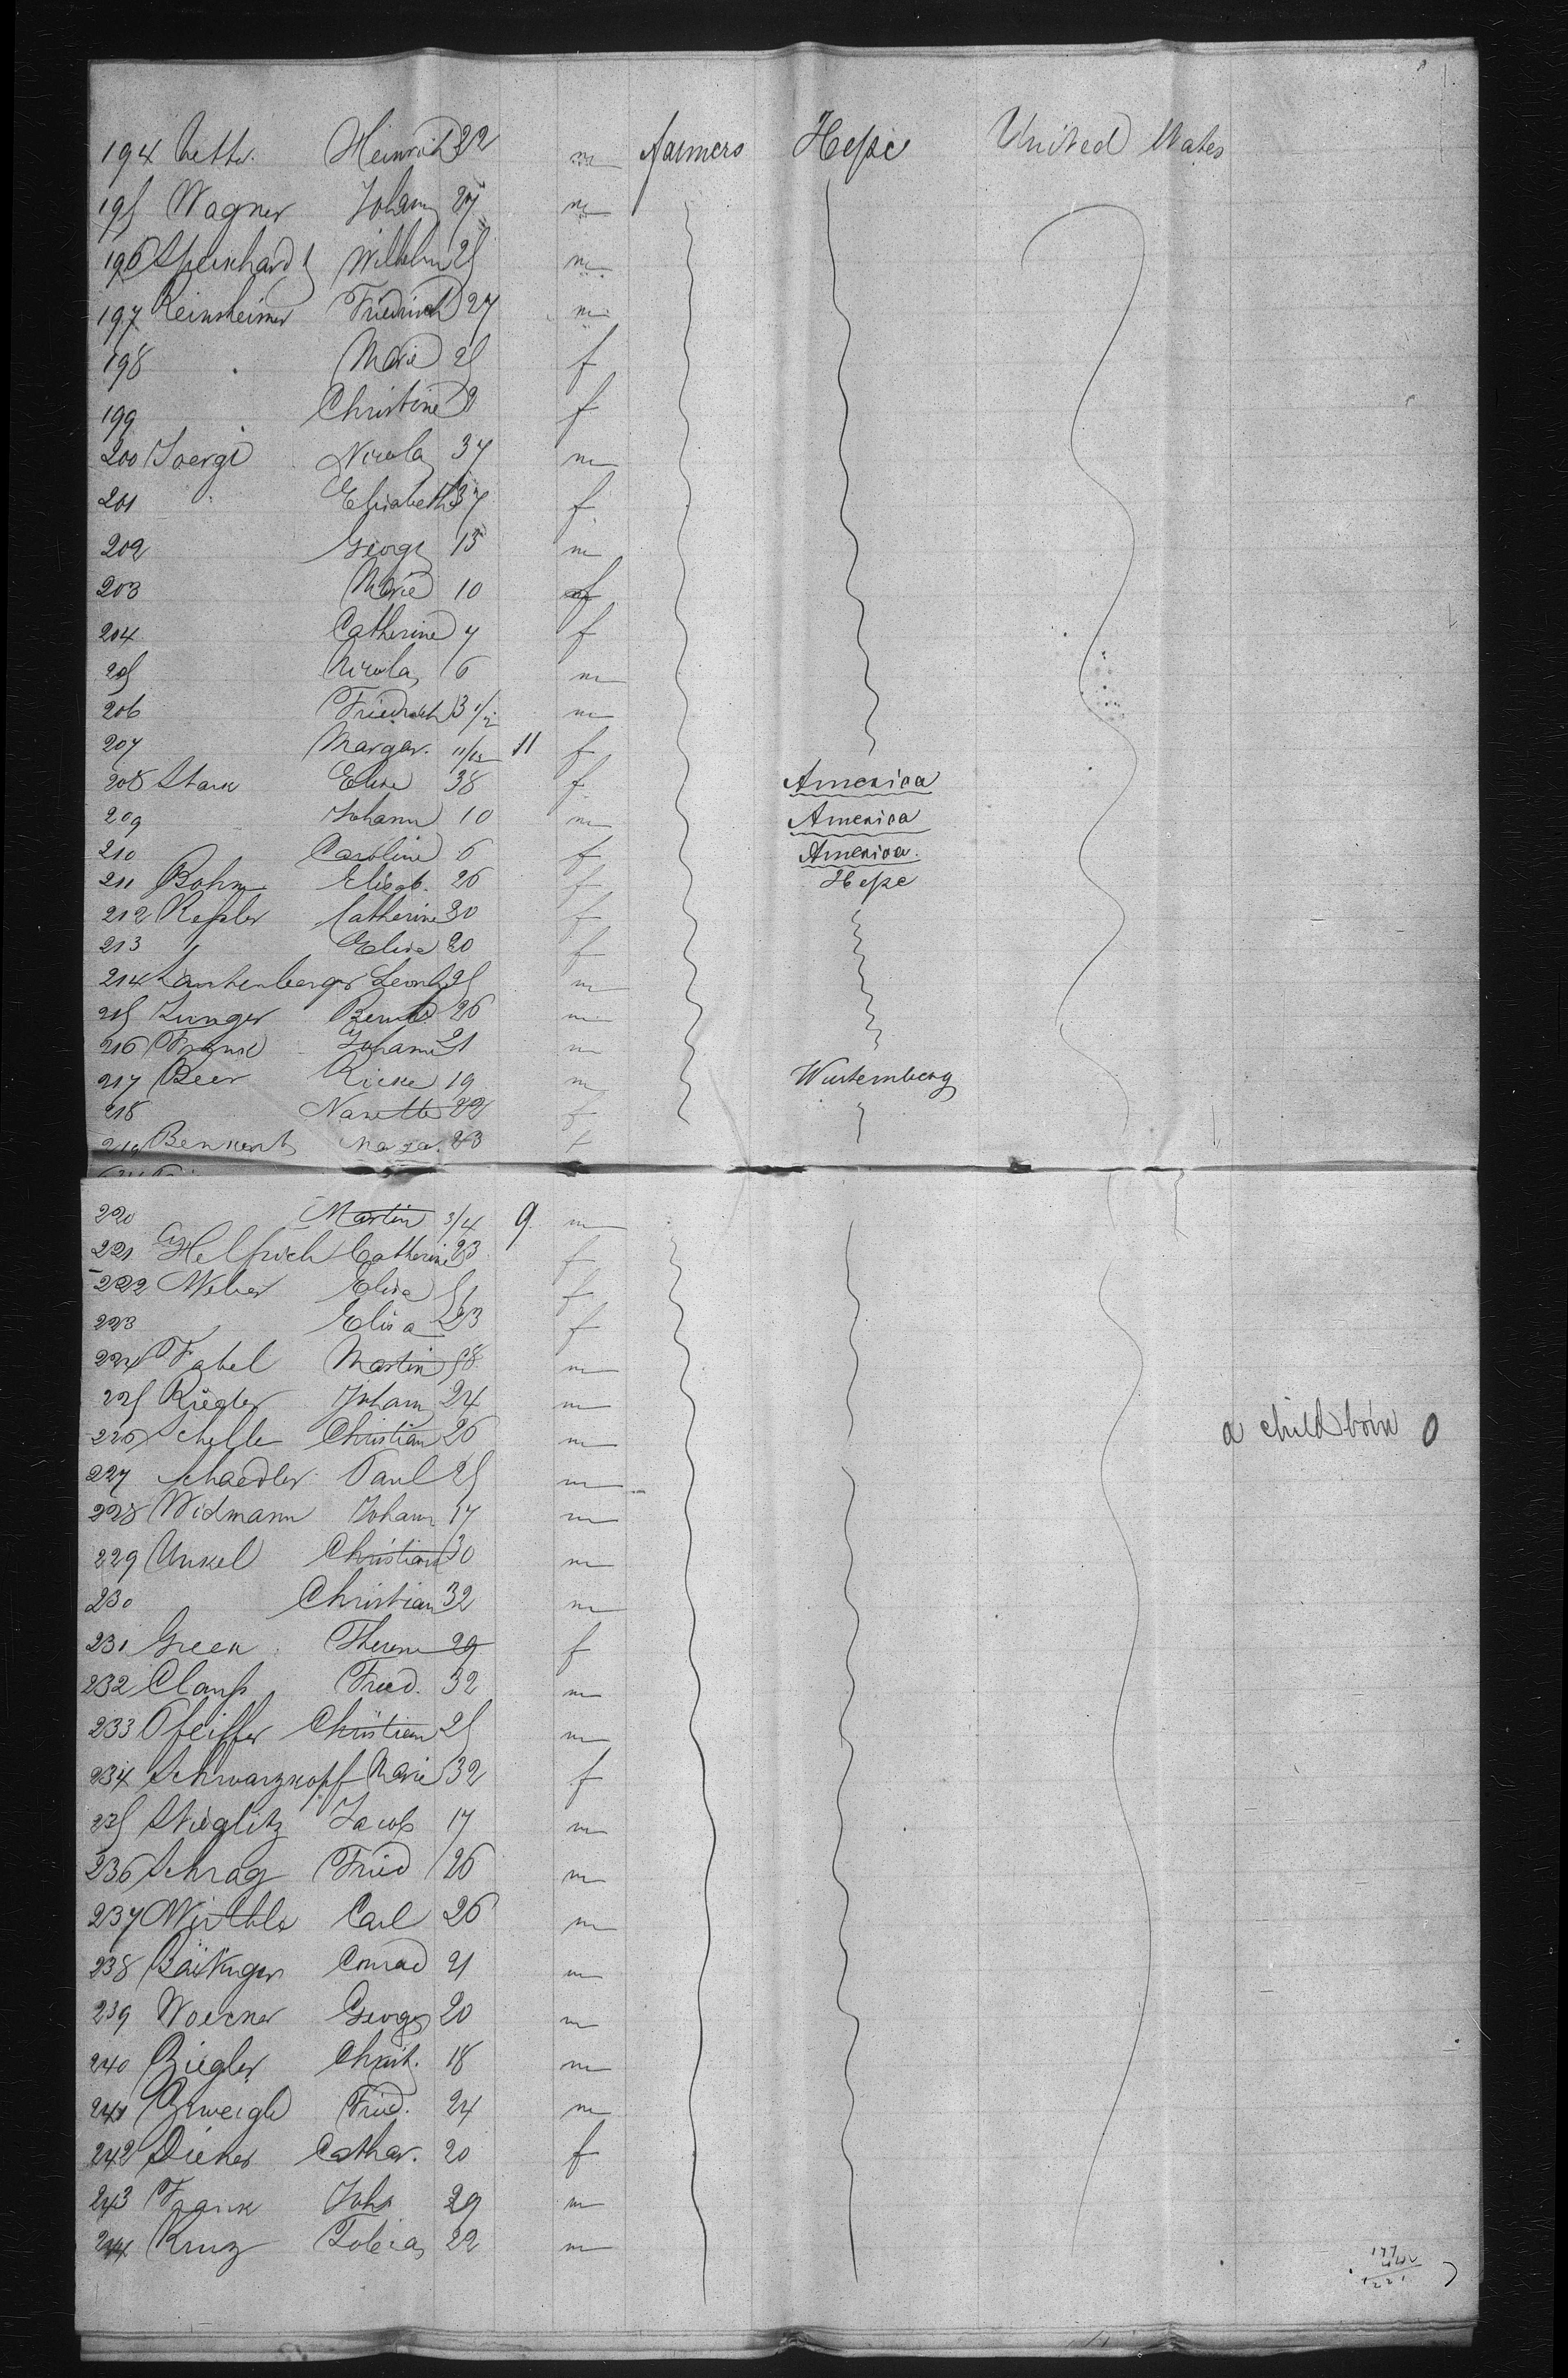 194 Vetter Heinrich 22 m farmers Hesse United States
195 Wagner Johann 27 m
196 Wilhelm 25 m
197 Reinheimer Friedrich 27 m
198 Marie 25 f
199 Christine 2 f
200 Joergi Nicolas 37 m
201 Elisabeth 37 f
202 George 15 m
203 Marie 10 f
204 Catherine 7 f
205 Nicolas 6 m
206 Friedrich 3 1/2 m
207 Margar. 11/12 11 f
208 Stark Elise 38 f America
209 Johann 10 m America
210 Caroline 6 f America.
211 Bohm Elisab. 26 f Hesse
212 Kessler Catherine 30 f
213 " Elise 20 f
214 Lautenberger Leonh. 25 m
215 Junger Bernd. 26 m
216 Frank Johann 21 m
217 Beer Ricke 19 m Wurtemberg
218 Nanette 22 f
219 23 f
220 Martin 3/4 9 m
221 Helfrich Catherine 23 f
222 Weber Elise 51 f
223 " Elisa 23 f
224 Fabel Martin 58 m
225 Riegler Johann 24 m
226 Schelle Christian 26 m a child born 0
227 Schaedler Paul 25 m
228 Widmann Johann 17 m
229 Unkel Christian 30 m
230 Christian 32 m
231 Green Therese 29 f
232 Clauss Fried. 32 m
233 Pfeiffer Christian 25 m
234 Schwarzkopf Marie 32 f
235 Stieglitz Jacob 17 m
236 Schrag Fried 26 m
237 Wirthle Carl 26 m
238 Conrad 21 m
239 Woerner George 20 m
240 Ziegler Christ. 18 m
241 Zweigle Fried. 24 m
242 Diener Cathar. 20 f
243 Frank Joha 29 m
244 Kruz Tobias 22 m